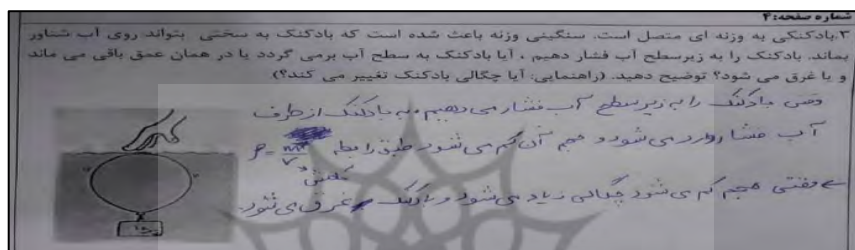 شماره صفحه:۴
۳.بادکنکی به وزنه ای متصل است. سنگینی وزنه باعث شده است که بادکنک به سختی بتواند روی آب شناور
بماند. بادکنک را به زیرسطح آب فشار دهیم ، آیا بادکنک به سطح آب برمی گردد یا در همان عمق باقی می ماند
و یا غرق می شود؟ توضیح دهید. (راهنمایی: آیا چگالی بادکنک تغییر می کند؟)
وقتی بادکنک را به زیر سطح آب فشار می دهیم، به بادکنک از طرف
آب فشار وارد می شود و حجم آن کم می شود طبق رابطه ρ = m/V
وقتی حجم کم می شود چگالی زیاد می شود و بادکنک غرق می شود.